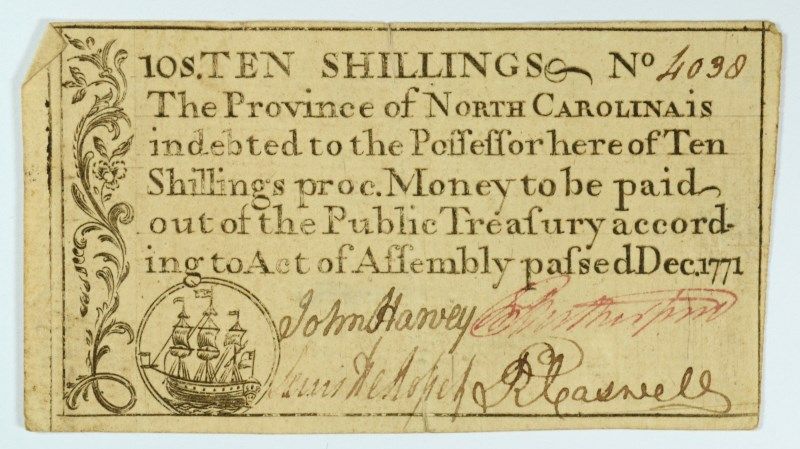 10S. TEN SHILLINGS Nº 4038
The Province of NORTH CAROLINA is
indebted to the Poſſeſſor here of Ten
Shillings proc. Money to be paid
out of the Public Treaſury accord-
ing to Act of Aſſembly paſsed Dec. 1771
John Harvey E Rutherfurd
Lewis De Roſset R Caswell